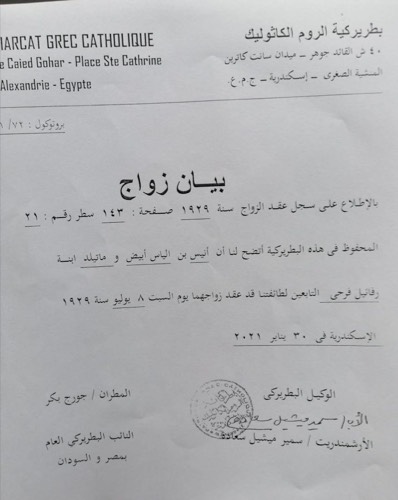 MARCAT GREC CATHOLIQUE
Caied Gohar - Place Ste Cathrine
Alexandrie - Egypte
بطريركية الروم الكاثوليك
٤٠ ش القائد جوهر – ميدان سانت كاترين
المنشية الصغرى – إسكندرية – ج.م.ع.
بروتوكول : ٧٢/
بيــان زواج
بالإطلاع على سجل عقد الزواج سنة ١٩٢٩ صفحة : ١٤٣ سطر رقم : ٢١
المحفوظ فى هذه البطريركية أتضح لنا أن أنيس بن الياس أبيض و ماتيلد ابنة
رفائيل فرحى التابعين لطائفتنا قد عقد زواجهما يوم السبت ٨ يوليو سنة ١٩٢٩
الإسكندرية فى ٣٠ يناير ٢٠٢١
الوكيل البطريركى
الأب/ سمير ميشيل سعادة
الأرشمندريت / سمير ميشيل سعادة
المطران / جورج بكر
النائب البطريركى العام
بمصر و السودان